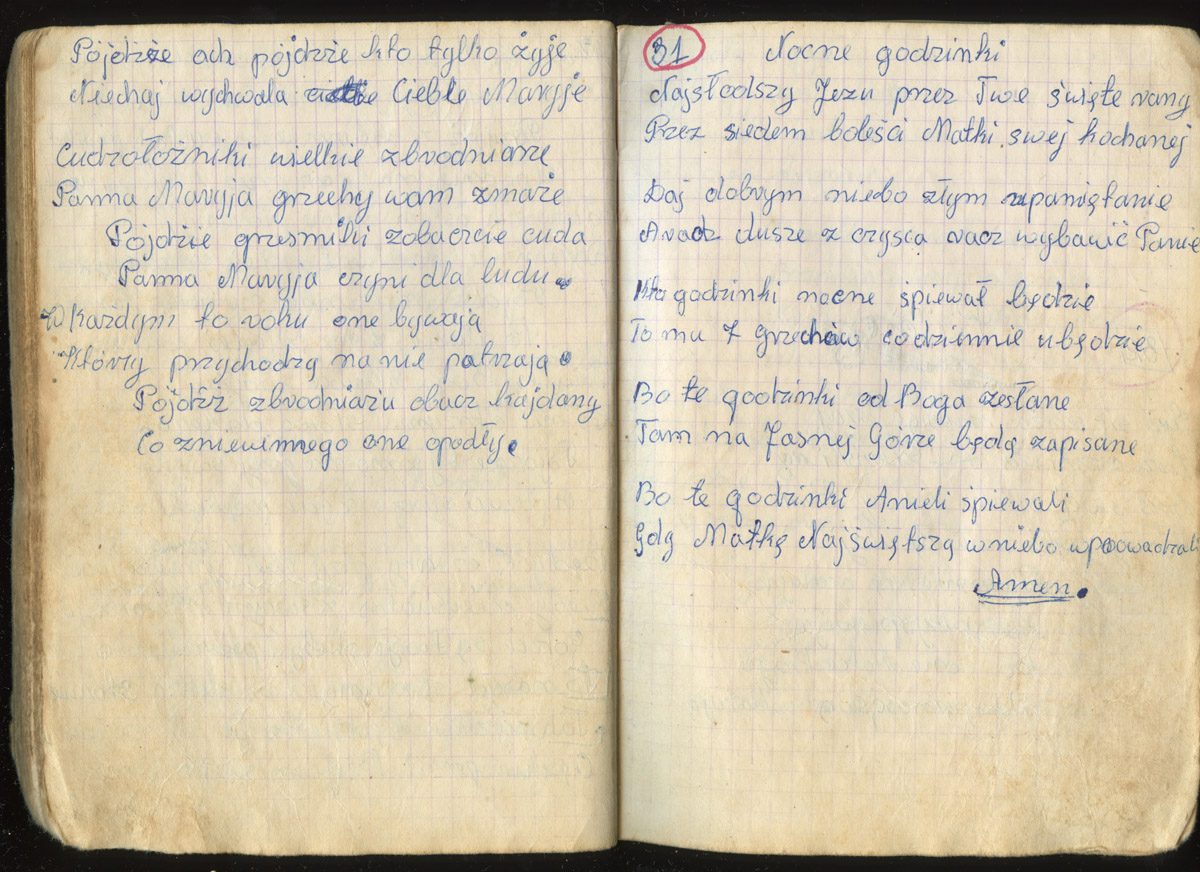 Pójdźże ach pójdzie kto tylko żyje
Niechaj wychwala Ciebie Maryje
Cudzołożniki wielkie zbrodniarze
Panna Maryja grzechy wam zmaże
Pójdzie grzesniki zobaczcie cuda
Panna Maryja czyni dla ludu.
W każdym to roku one bywają
Którzy przychodzą na nie patrzają.
Pójdźż zbrodniażu obacz kajdany
Co zniewinnego one opadły.
31 Nocne godzinki
Najsłodszy Jezu przez Twe święte rany
Przez siedem boleści Matki swej kochanej
Daj dobrym niebo złym upamiętanie
A radz dusze z czysca racz wybawić Panie
Kto godzinki nocne śpiewał będzie
To mu 7 grzechów codziennie ubędzie
Bo te godzinki od Boga zesłane
Tam na Jasnej Górze będą zapisane
Bo te godzinki Anieli śpiewali
Gdy Matkę Najświętszą w niebo wprowadzali
Amen.